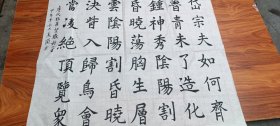 岱宗夫如何齊
魯青未了造化
鍾神秀陰陽割
昏曉蕩胸生層
雲陰陽割昏曉
決眥入歸鳥會
當凌絕頂覽眾